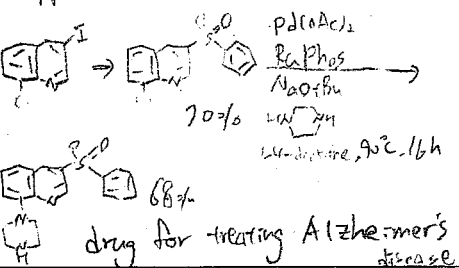 I
O
O
Pd(OAc)2
RuPhos
NaOtBu
70%
HN NH
1,4-dioxane, 90°C, 16h
O
68%
N
H
drug for treating Alzheimer's
disease